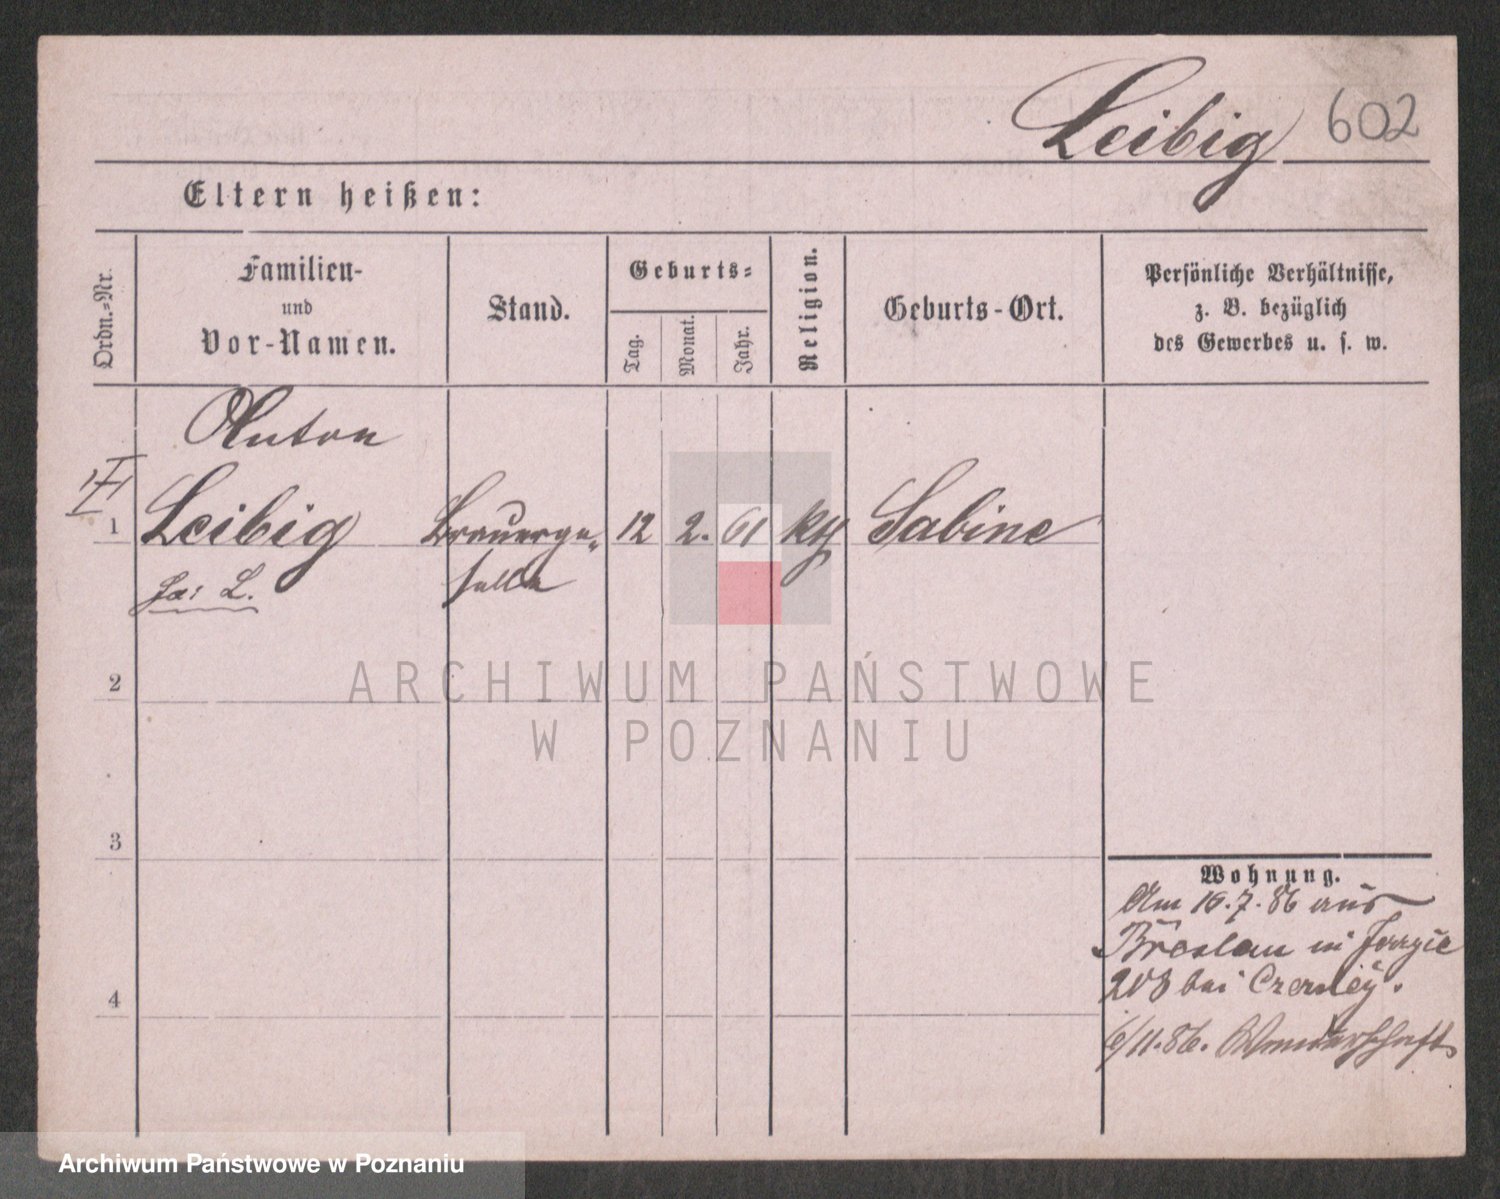 Leibig 602
Eltern heißen:
Ordn.-Nr.
Familien-
und
Vor-Namen.
Stand.
Geburts-
Tag.
Monat.
Jahr.
Religion.
Geburts-Ort.
Persönliche Verhältnisse,
z. B. bezüglich
des Gewerbes u. s. w.
Anton
1 Leibig Brauerge- 12 2. 61 kth Sabine
selle
L.
2
3
4
Wohnung.
Am 16.7.86 aus
Breslau in
208 bei
6/11.86. Wanderschaft
ARCHIWUM PAŃSTWOWE
W POZNANIU
Archiwum Państwowe w Poznaniu